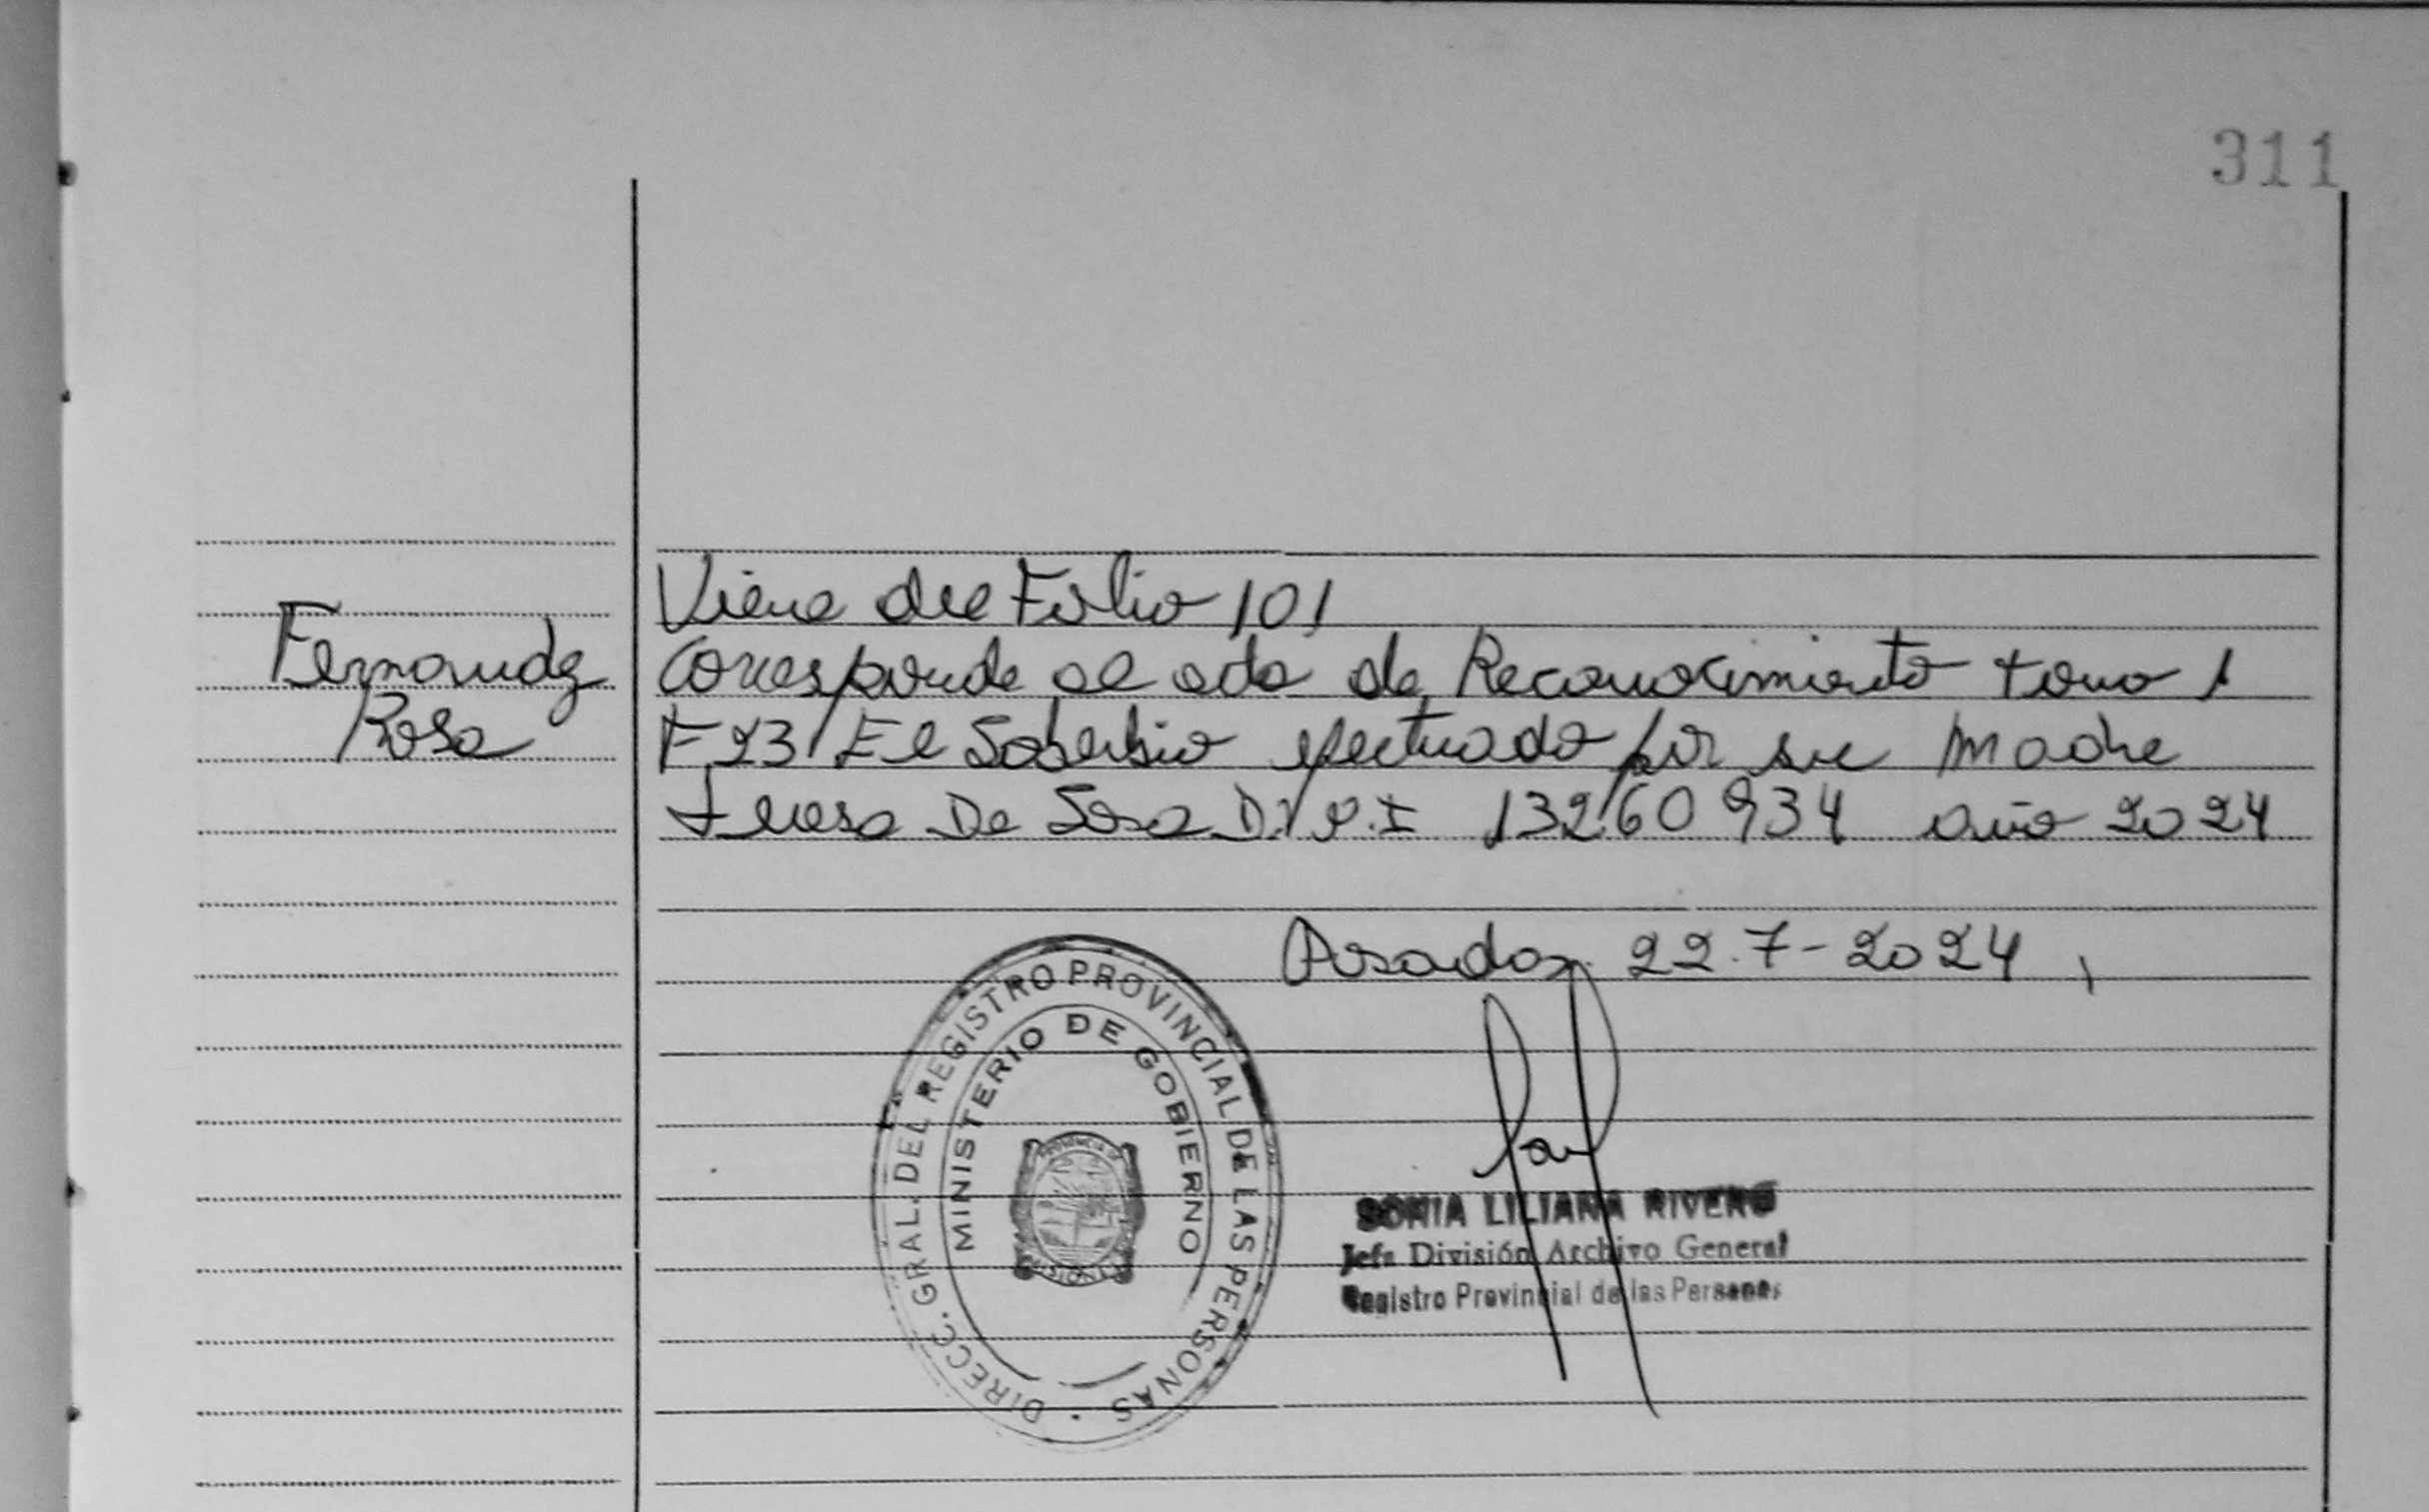 311
Viene del Folio 101
Fernandez
Rosa
Corresponde al acta de Reconocimiento tomo 1
F 23 El Soberbio efectuado por su madre
Teresa De Sosa D.N.I 13260934 año 2024
Posadas 22.7-2024
DIRECC. GRAL. DEL REGISTRO PROVINCIAL DE LAS PERSONAS
MINISTERIO DE GOBIERNO
PROVINCIA DE
MISIONES
SONIA LILIANA RIVERO
Jefa División Archivo General
Registro Provincial de las Personas